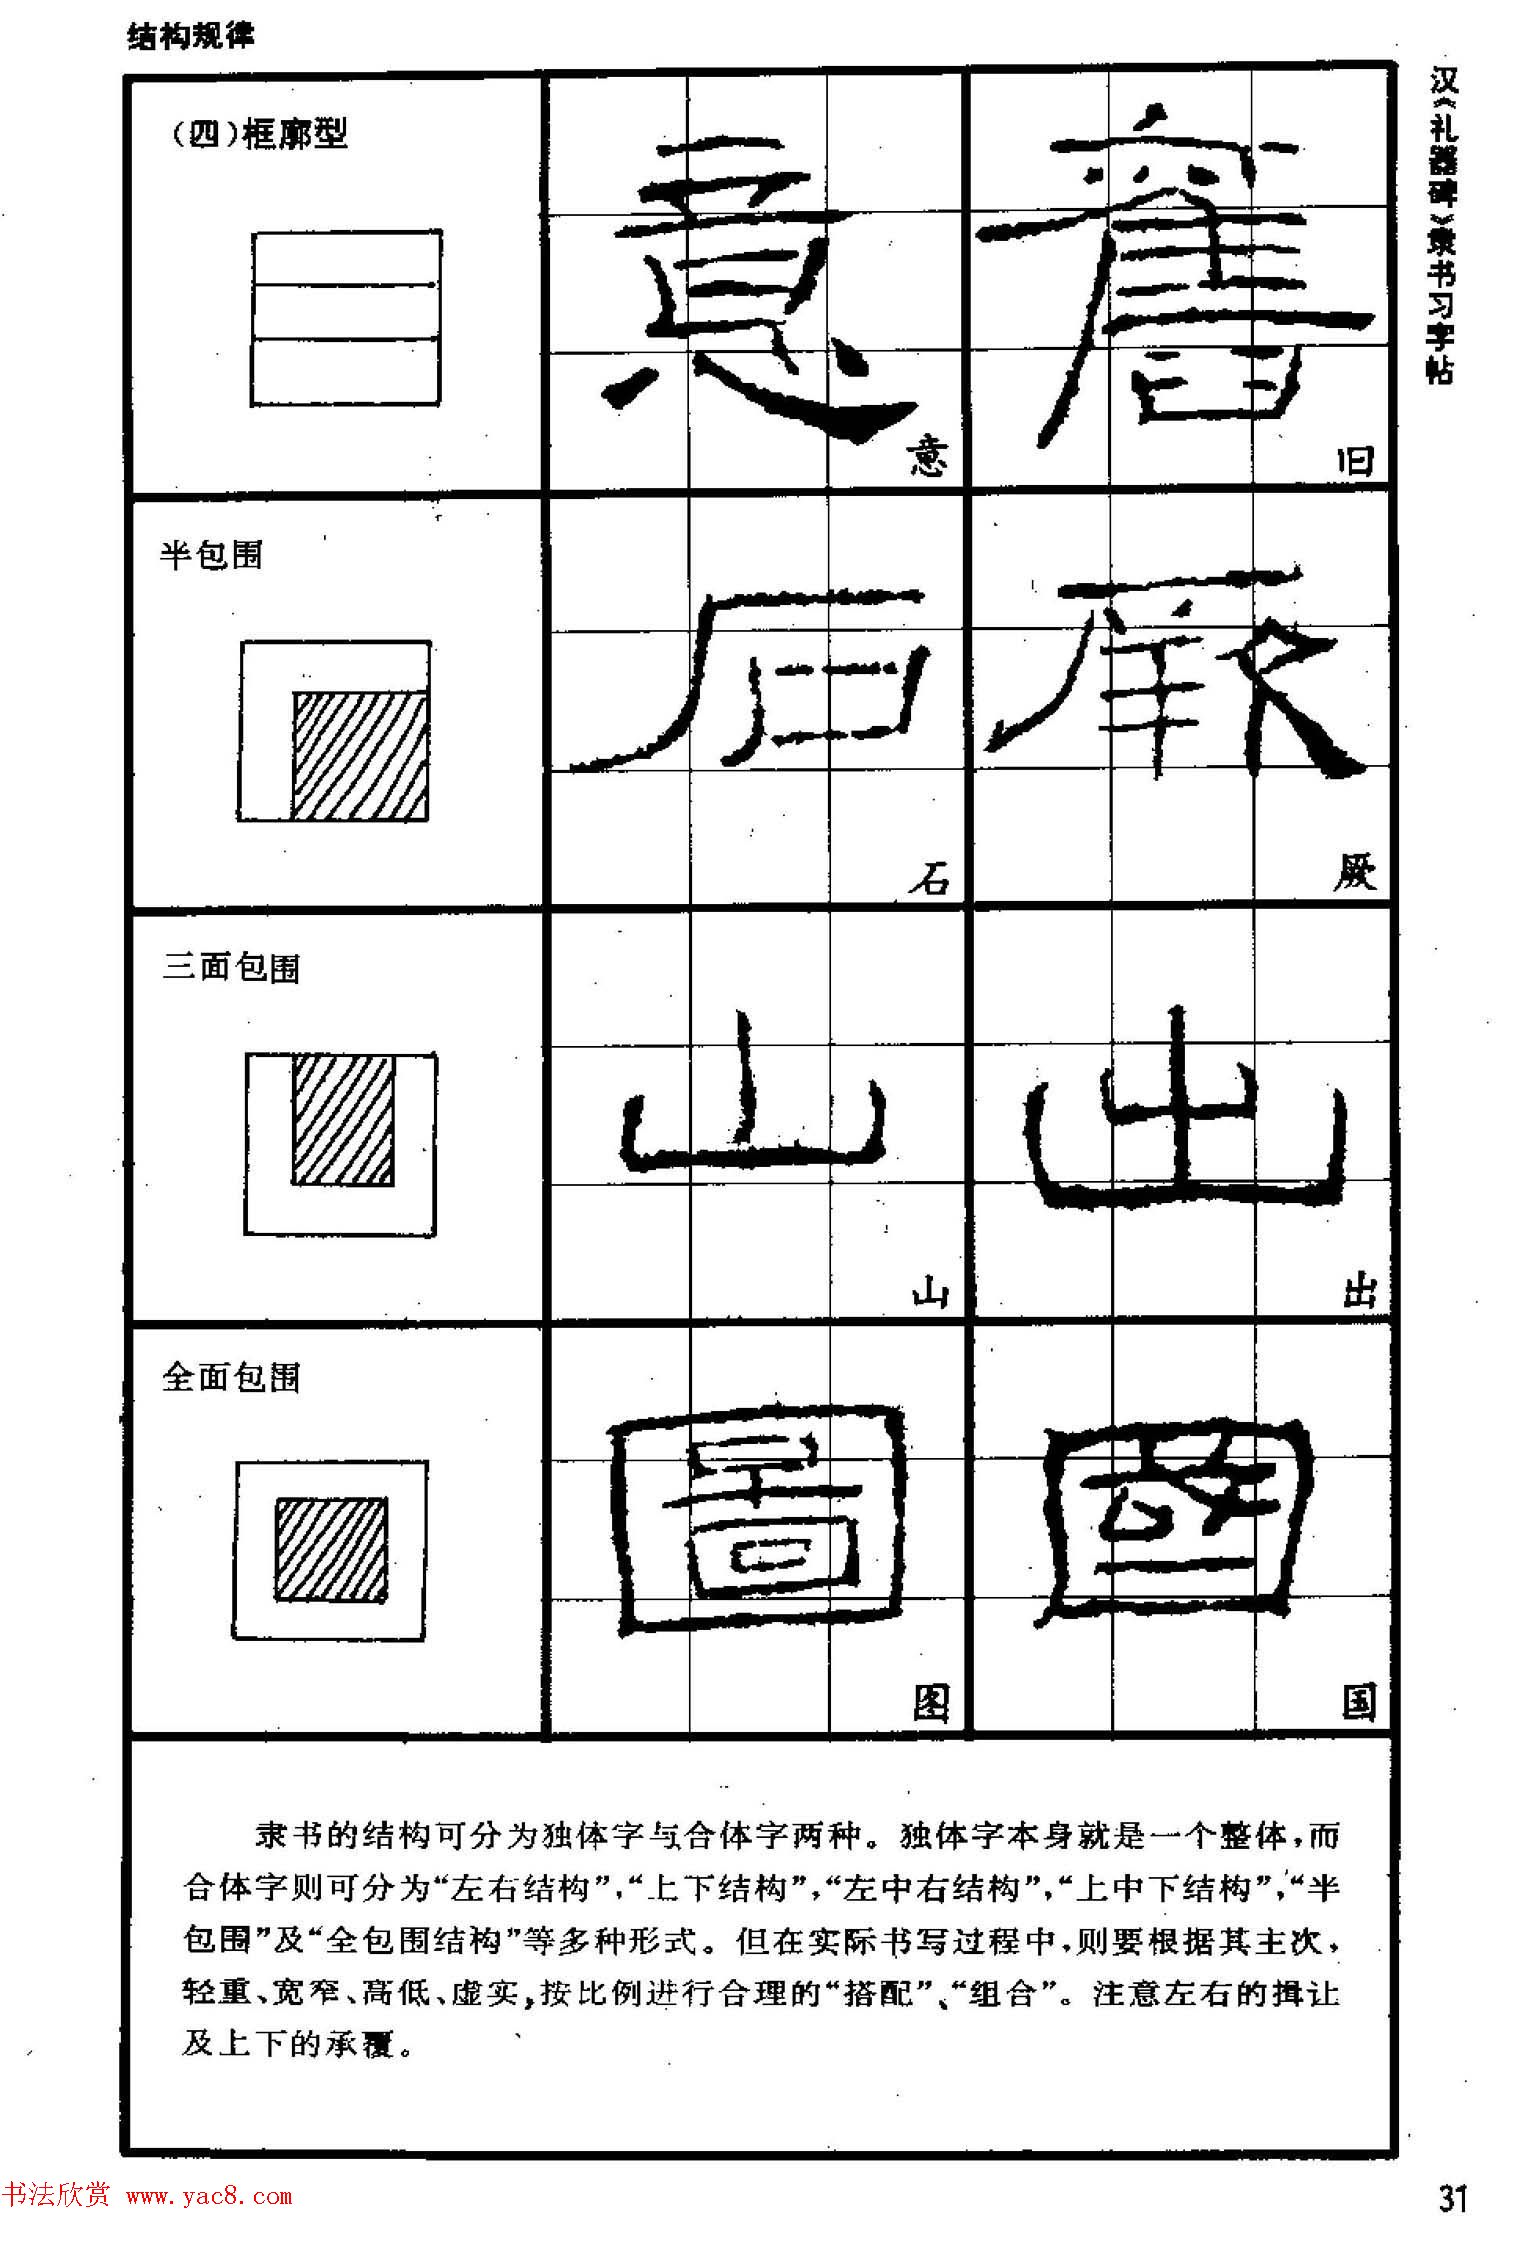 结构规律
汉《礼器碑》隶书习字帖
（四）框廓型
意
旧
半包围
石
厥
三面包围
山
出
全面包围
图
国
隶书的结构可分为独体字与合体字两种。独体字本身就是一个整体，而
合体字则可分为“左右结构”，“上下结构”，“左中右结构”，“上中下结构”，“半
包围”及“全包围结构”等多种形式。但在实际书写过程中，则要根据其主次，
轻重、宽窄、高低、虚实，按比例进行合理的“搭配”、“组合”。注意左右的揖让
及上下的承覆。
书法欣赏 www.yac8.com
31